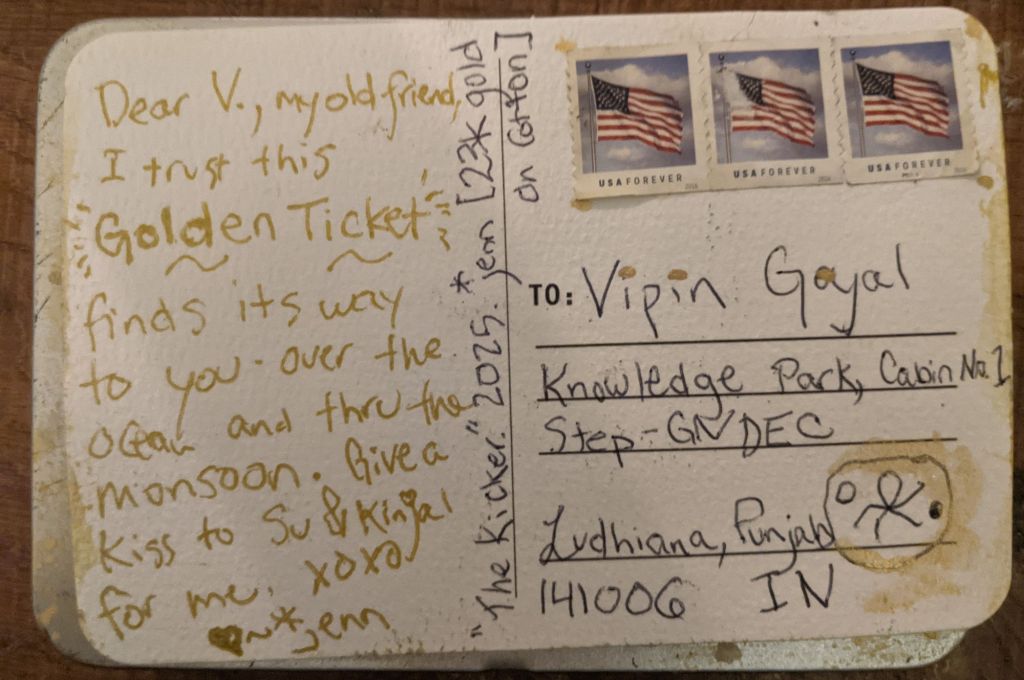 Dear V., my old friend,
I trust this
Golden Ticket
finds its way
to you - over the
ocean and thru the
monsoon. Give a
kiss to Su & Kinjal
for me. xoxo
*jenn
"The Kicker." 2025. *jenn [23K gold
on cotton]
USA FOREVER 2016
USA FOREVER 2016
USA FOREVER
TO: Vipin Goyal
Knowledge Park, Cabin No. 1
Step-GNDEC
Ludhiana, Punjab
141006 IN